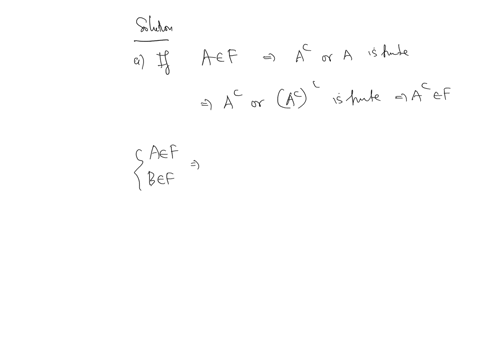 Solution
a) If A∈F ⇒ A^c or A is finite
⇒ A^c or (A^c)^c is finite ⇒ A^c ∈ F
{ A∈F
B∈F ⇒